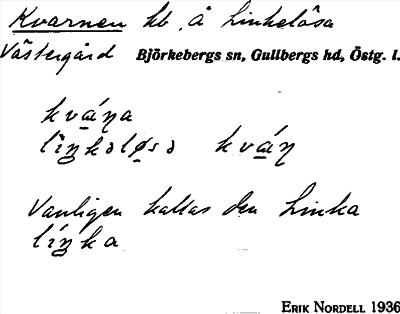 Kvarnen hb. å Linkelösa
Västergård Björkebergs sn, Gullbergs hd, Östg. l.
kvá̱ṇa
líŋkəlø̱sə kvá̱ṇ
Vanligen kallas den Linka
líŋka
ERIK NORDELL 1936